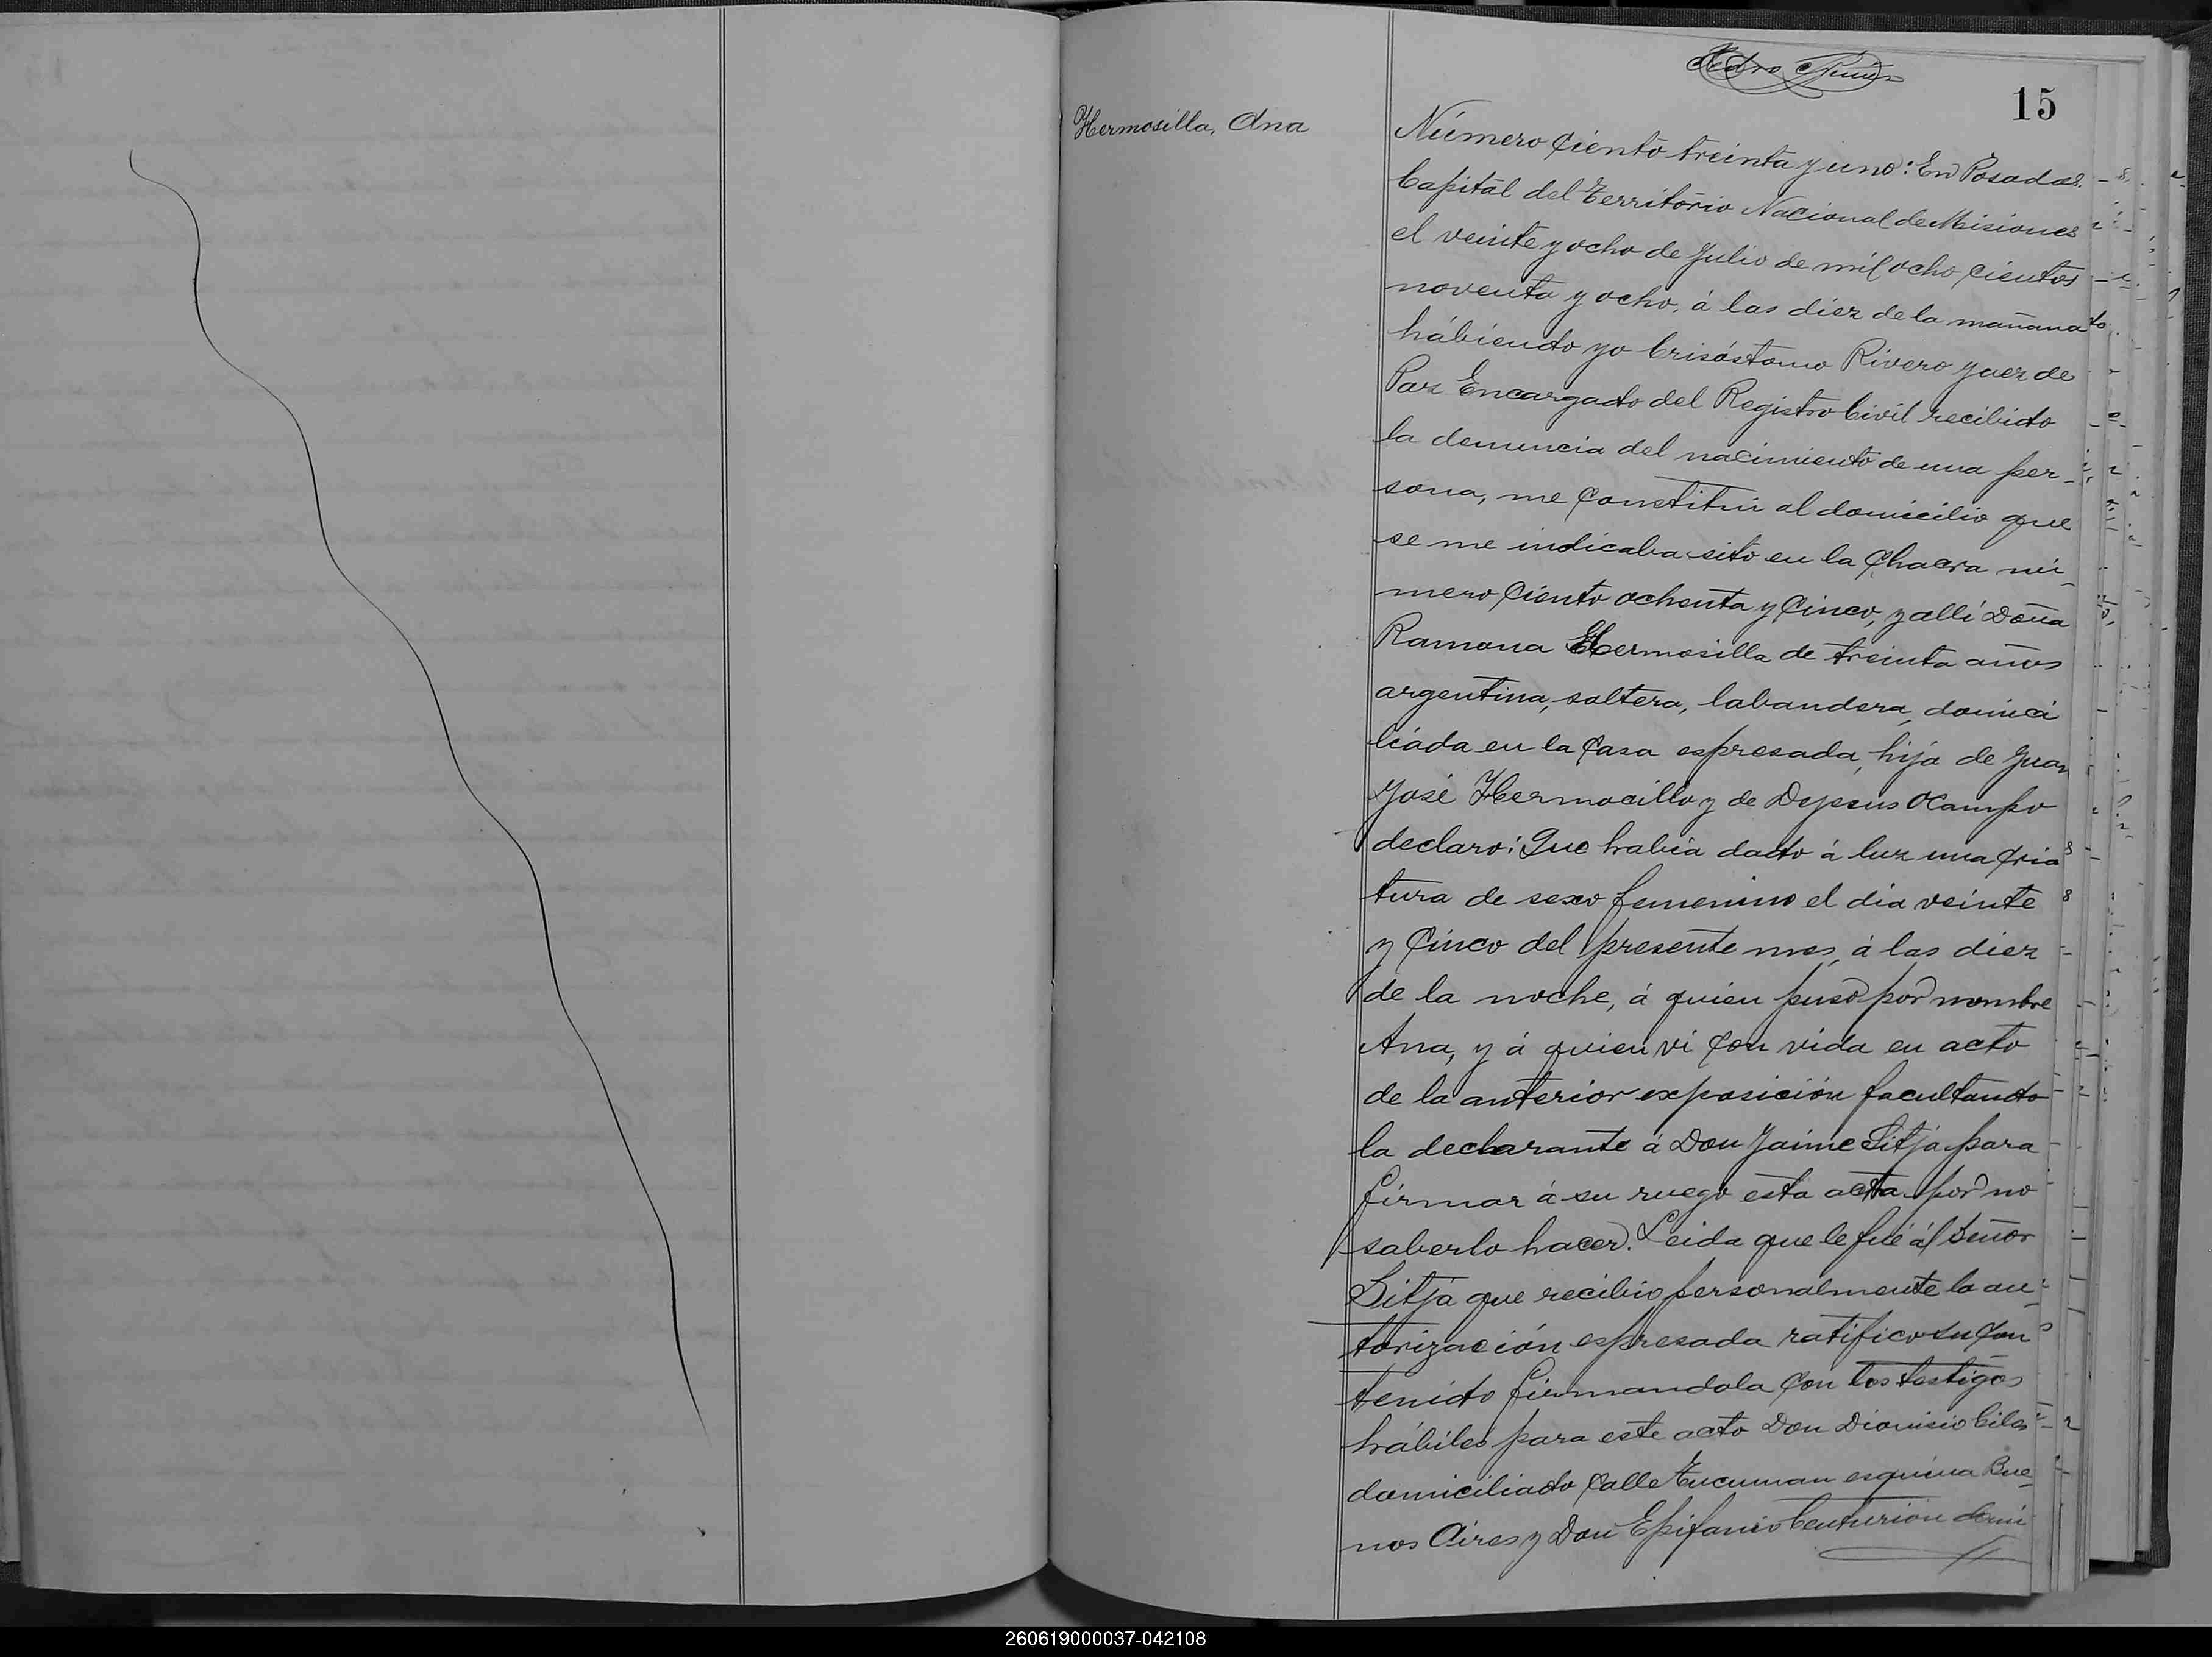 Pedro
15
Hermosilla, Ana
Número ciento treinta y uno: En Posadas.
Capital del Territorio Nacional de Misiones
el veinte y ocho de Julio de mil ocho cientos
noventa y ocho, á las diez de la mañana
hábiendo yo Crisóstomo Rivero Juez de
Paz Encargado del Registro Civil recibido
la denuncia del nacimiento de una per-
sona, me constitui al domicilio que
se me indicaba sito en la Chacra nú-
mero ciento ochenta y cinco, y allí Doña
Ramona Hermosilla de treinta años
argentina, soltera, labandera, domici
liada en la casa espresada, hija de Juan
José Hermocilla y de Ocampo
declaro: Que había dado á luz una cria
tura de sexo femenino el día veinte
y cinco del presente mes, á las diez
de la noche, á quien puso por nombre
Ana, y á quien vi con vida en acto
de la anterior exposición facultando
la declarante á Don Jaime Sitjá para
firmar á su ruego esta acta por no
saberlo hacer. Leida que le fué ál Señor
Sitjá que recibio personalmente la au-
torización espresada ratifico su con
tenido firmandola con los testigos
hábiles para este acto Don Dionisio
domiciliado calle Tucuman esquina Bue-
nos Aires y Don Epifanio Centurion domi
260619000037-042108